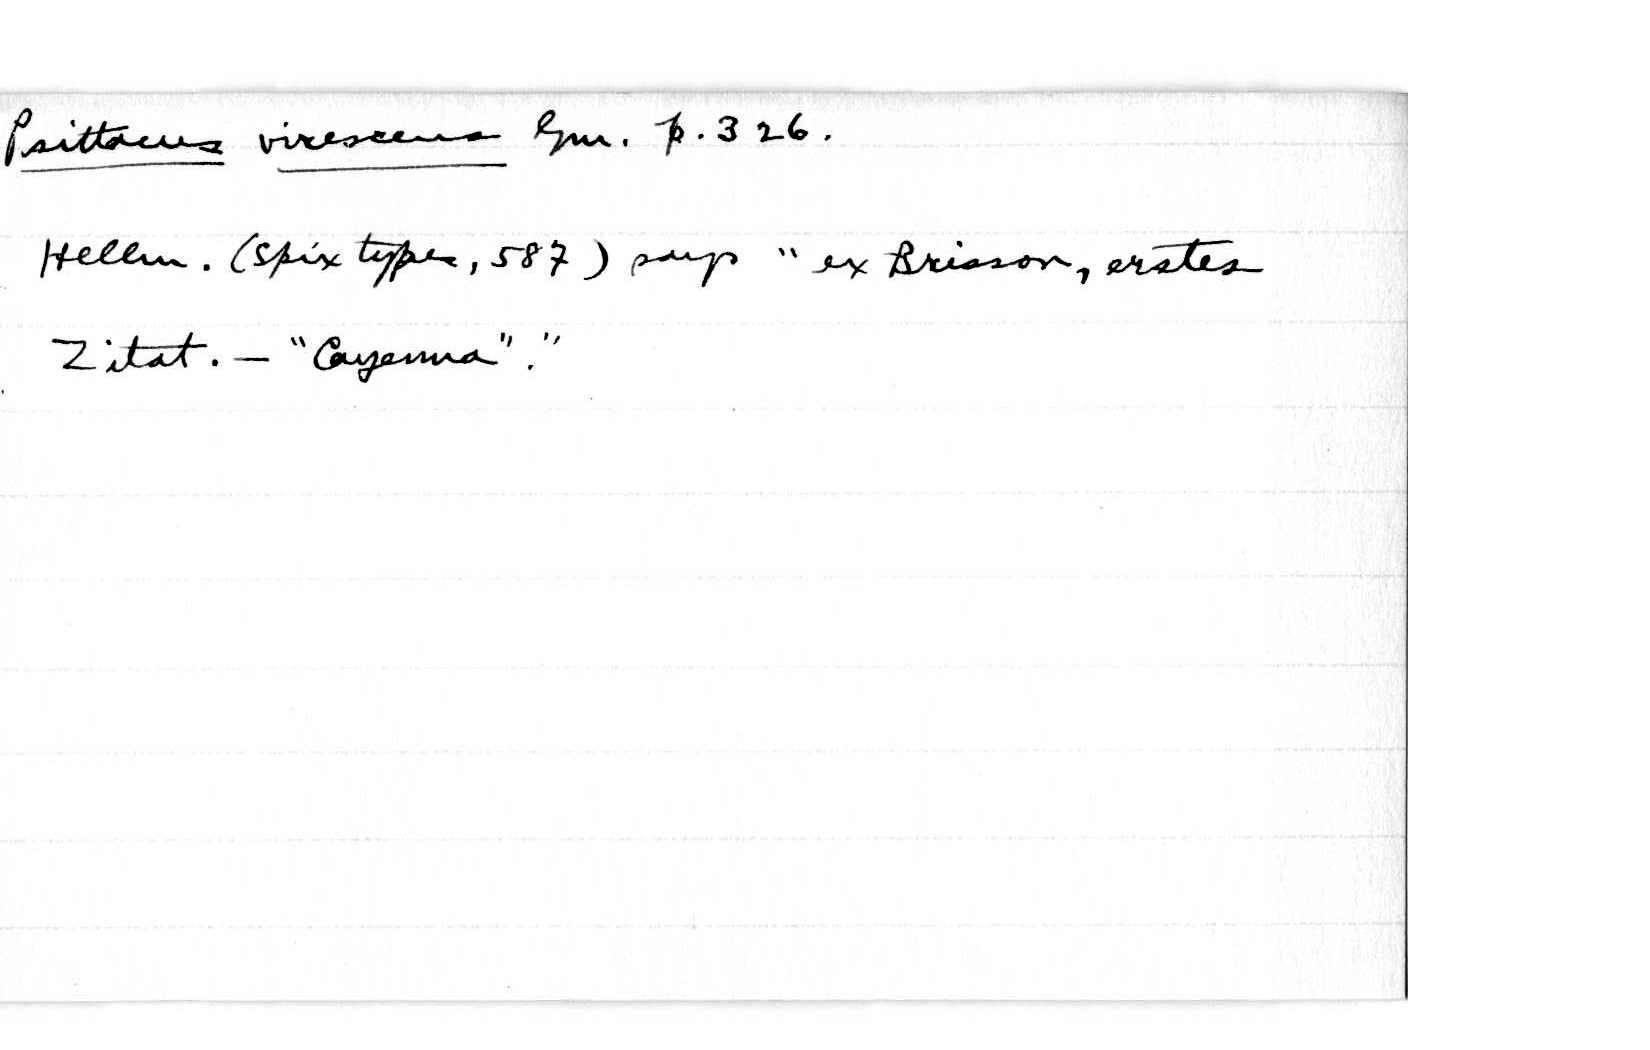 Psittacus virescens Gm. p. 326.
Hellm. (Spix types, 587) says "ex Brisson, erstes
Zitat. – "Cayenna"."